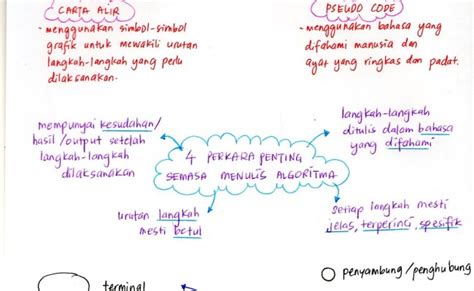 CARTA ALIR
- menggunakan simbol-simbol
grafik untuk mewakili urutan
langkah-langkah yang perlu
dilaksanakan.
PSEUDO CODE
- menggunakan bahasa yang
difahami manusia dan
ayat yang ringkas dan padat.
mempunyai kesudahan/
hasil/output setelah
langkah-langkah
dilaksanakan
langkah-langkah
ditulis dalam bahasa
yang difahami
4 PERKARA PENTING
SEMASA MENULIS ALGORITMA
urutan langkah
mesti betul
setiap langkah mesti
jelas, terperinci, spesifik
penyambung/penghubung
terminal